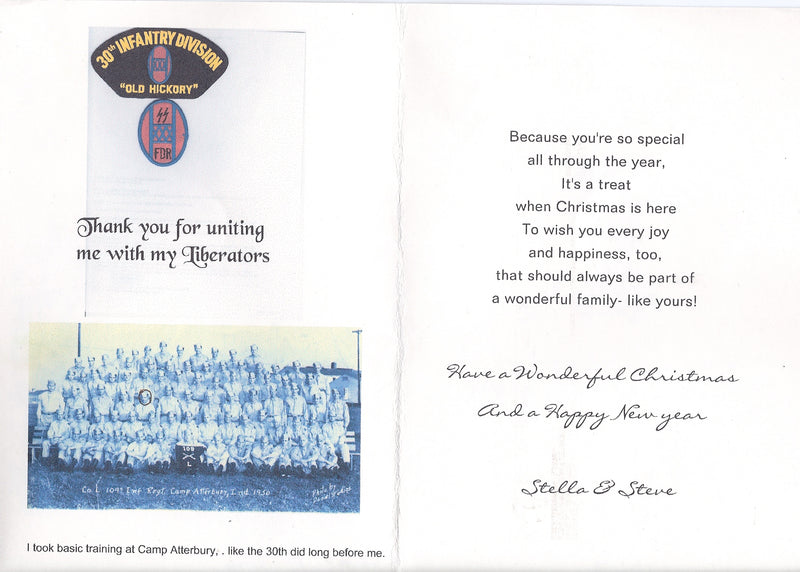 30th INFANTRY DIVISION
"OLD HICKORY"
FDR
Thank you for uniting
me with my Liberators
109
L
Co. L 109th Inf. Regt. Camp Atterbury, Ind. 1950
Photo by
I took basic training at Camp Atterbury, . like the 30th did long before me.
Because you're so special
all through the year,
It's a treat
when Christmas is here
To wish you every joy
and happiness, too,
that should always be part of
a wonderful family- like yours!
Have a Wonderful Christmas
And a Happy New year
Stella & Steve